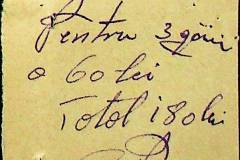 Pentru 3 găini
a 60 lei
Total 180 lei